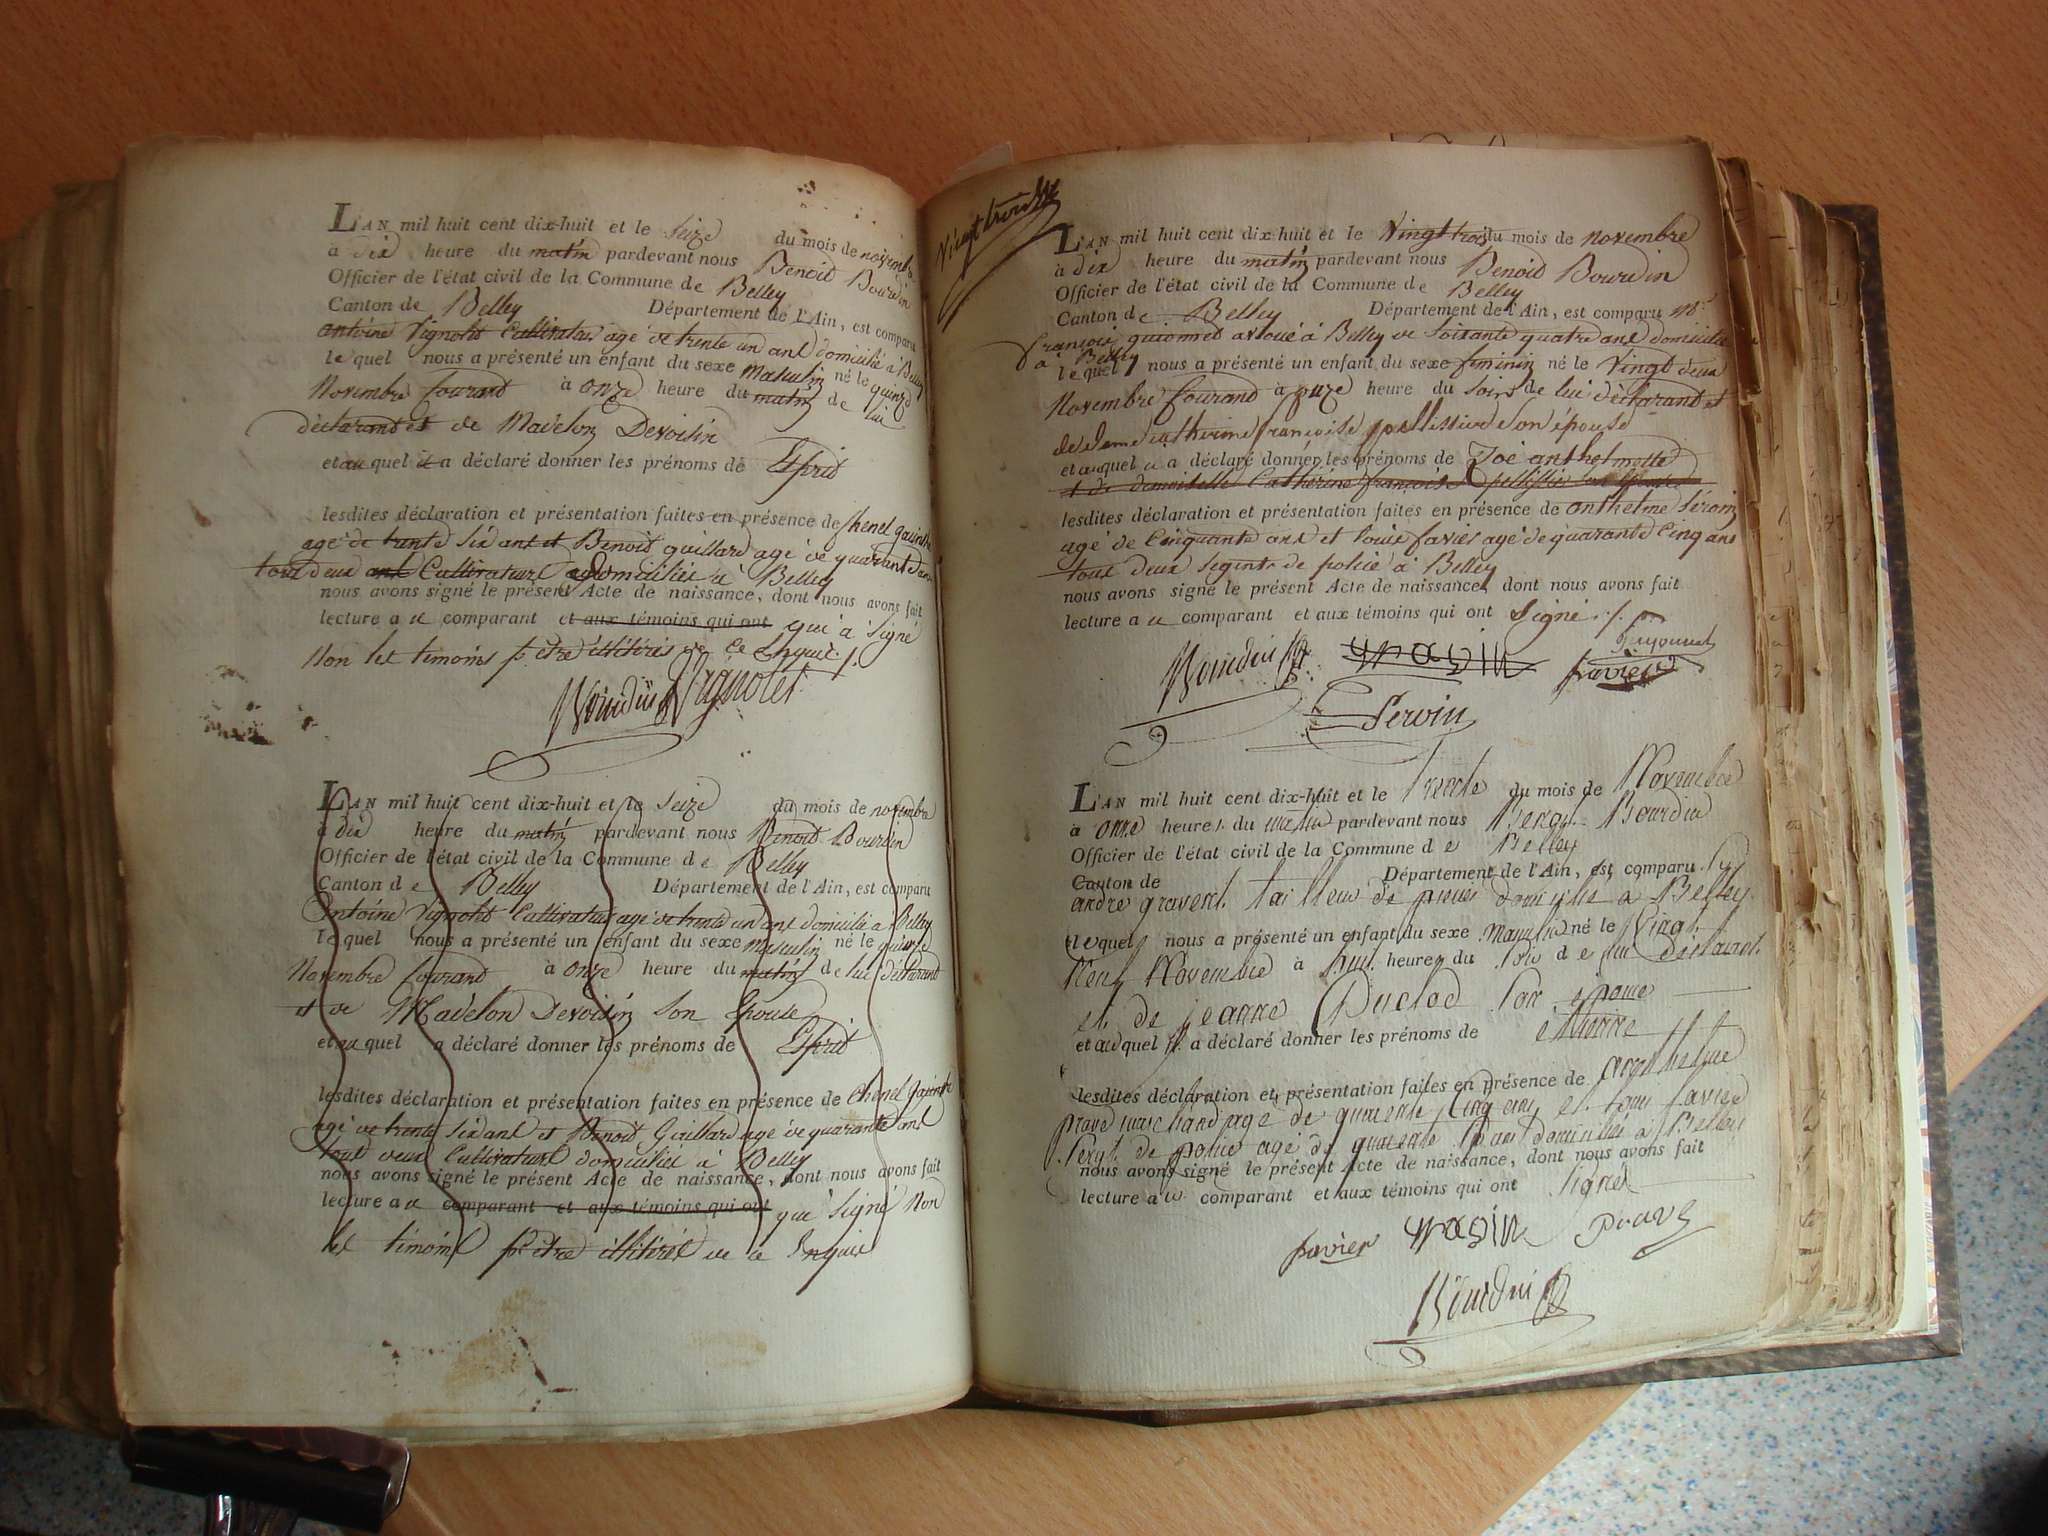 L'AN mil huit cent dix-huit et le Seize du mois de novembre
à dix heure du matin pardevant nous Benoit Bourdin
Officier de l'état civil de la Commune de Belley
Canton de Belley Département de l'Ain, est comparu
antoine Vignolet Cultivateur agé de trente un ans domicilié à Belley
lequel nous a présenté un enfant du sexe masculin né le quinze
Novembre Courant à onze heure du matin de lui
déclarant et de Madelon Devoisin
et au quel il a déclaré donner les prénoms de Esprit
lesdites déclaration et présentation faites en présence de
agé de trente Six ans et Benoit guillard agé de quarante ans
tous deux ans Cultivateurs domiciliés à Belley
nous avons signé le présent Acte de naissance, dont nous avons fait
lecture au comparant et aux témoins qui ont qui a Signé
Non les timoins pr être illitérés de ce Enquis ./.
Bourdin Vignolet
L'AN mil huit cent dix-huit et le Seize du mois de novembre
à dix heure du matin pardevant nous Benoit Bourdin
Officier de l'état civil de la Commune de Belley
Canton de Belley Département de l'Ain, est comparu
Antoine Vignolet Cultivateur agé de trente un ans domicilié à Belley
lequel nous a présenté un enfant du sexe masculin né le quinze
Novembre Courant à onze heure du matin de lui déclarant
et de Madelon Devoisin Son Epouse
et au quel a déclaré donner les prénoms de Esprit
lesdites déclaration et présentation faites en présence de
agé de trente Six ans et Benoit Guillard agé de quarante ans
tous deux Cultivateurs domiciliés à Belley
nous avons signé le présent Acte de naissance, dont nous avons fait
lecture au comparant et aux témoins qui ont qui a Signé Non
les timoins pr être illitérés de ce Enquis
Vingt trois
L'AN mil huit cent dix-huit et le Vingt trois du mois de novembre
à dix heure du matin pardevant nous Benoit Bourdin
Officier de l'état civil de la Commune de Belley
Canton de Belley Département de l'Ain, est comparu Mr
françois guionnet avoué à Belley de Soixante quatre ans domicilié
à Belley
lequel nous a présenté un enfant du sexe feminin né le Vingt deux
Novembre Courant à onze heure du Soir de lui déclarant et
de Dame catherine françoise pellissier Son épouse
et auquel il a déclaré donner les prénoms de Zoé anthelmette
et de demoiselle Catherine françoise pellissier
lesdites déclaration et présentation faites en présence de anthelme
agé de Cinquante ans et Louis favier agé de quarante Cinq ans
tous deux Segents de police à Belley
nous avons signé le présent Acte de naissance, dont nous avons fait
lecture au comparant et aux témoins qui ont Signé ./.
Bourdin favier
Servin
L'AN mil huit cent dix-huit et le trente du mois de Novembre
à onze heures du matin pardevant nous Benoit Bourdin
Officier de l'état civil de la Commune de Belley
Canton de Département de l'Ain, est comparu
andré gravent tailleur de pierre domicilié à Belley
lequel nous a présenté un enfant du sexe Masculin né le Vingt
Neuf Novembre à huit heures du Soir de lui déclarant
et de jeanne Duclod Son epouse
et au quel il a déclaré donner les prénoms de etienne
lesdites déclaration et présentation faites en présence de anthelme
prave marchand agé de quarente Cinq ans et louis favier
Sergt de police agé de quarente ans domiciliés à Belley
nous avons signé le présent Acte de naissance, dont nous avons fait
lecture au comparant et aux témoins qui ont Signés
favier prave
Bourdin